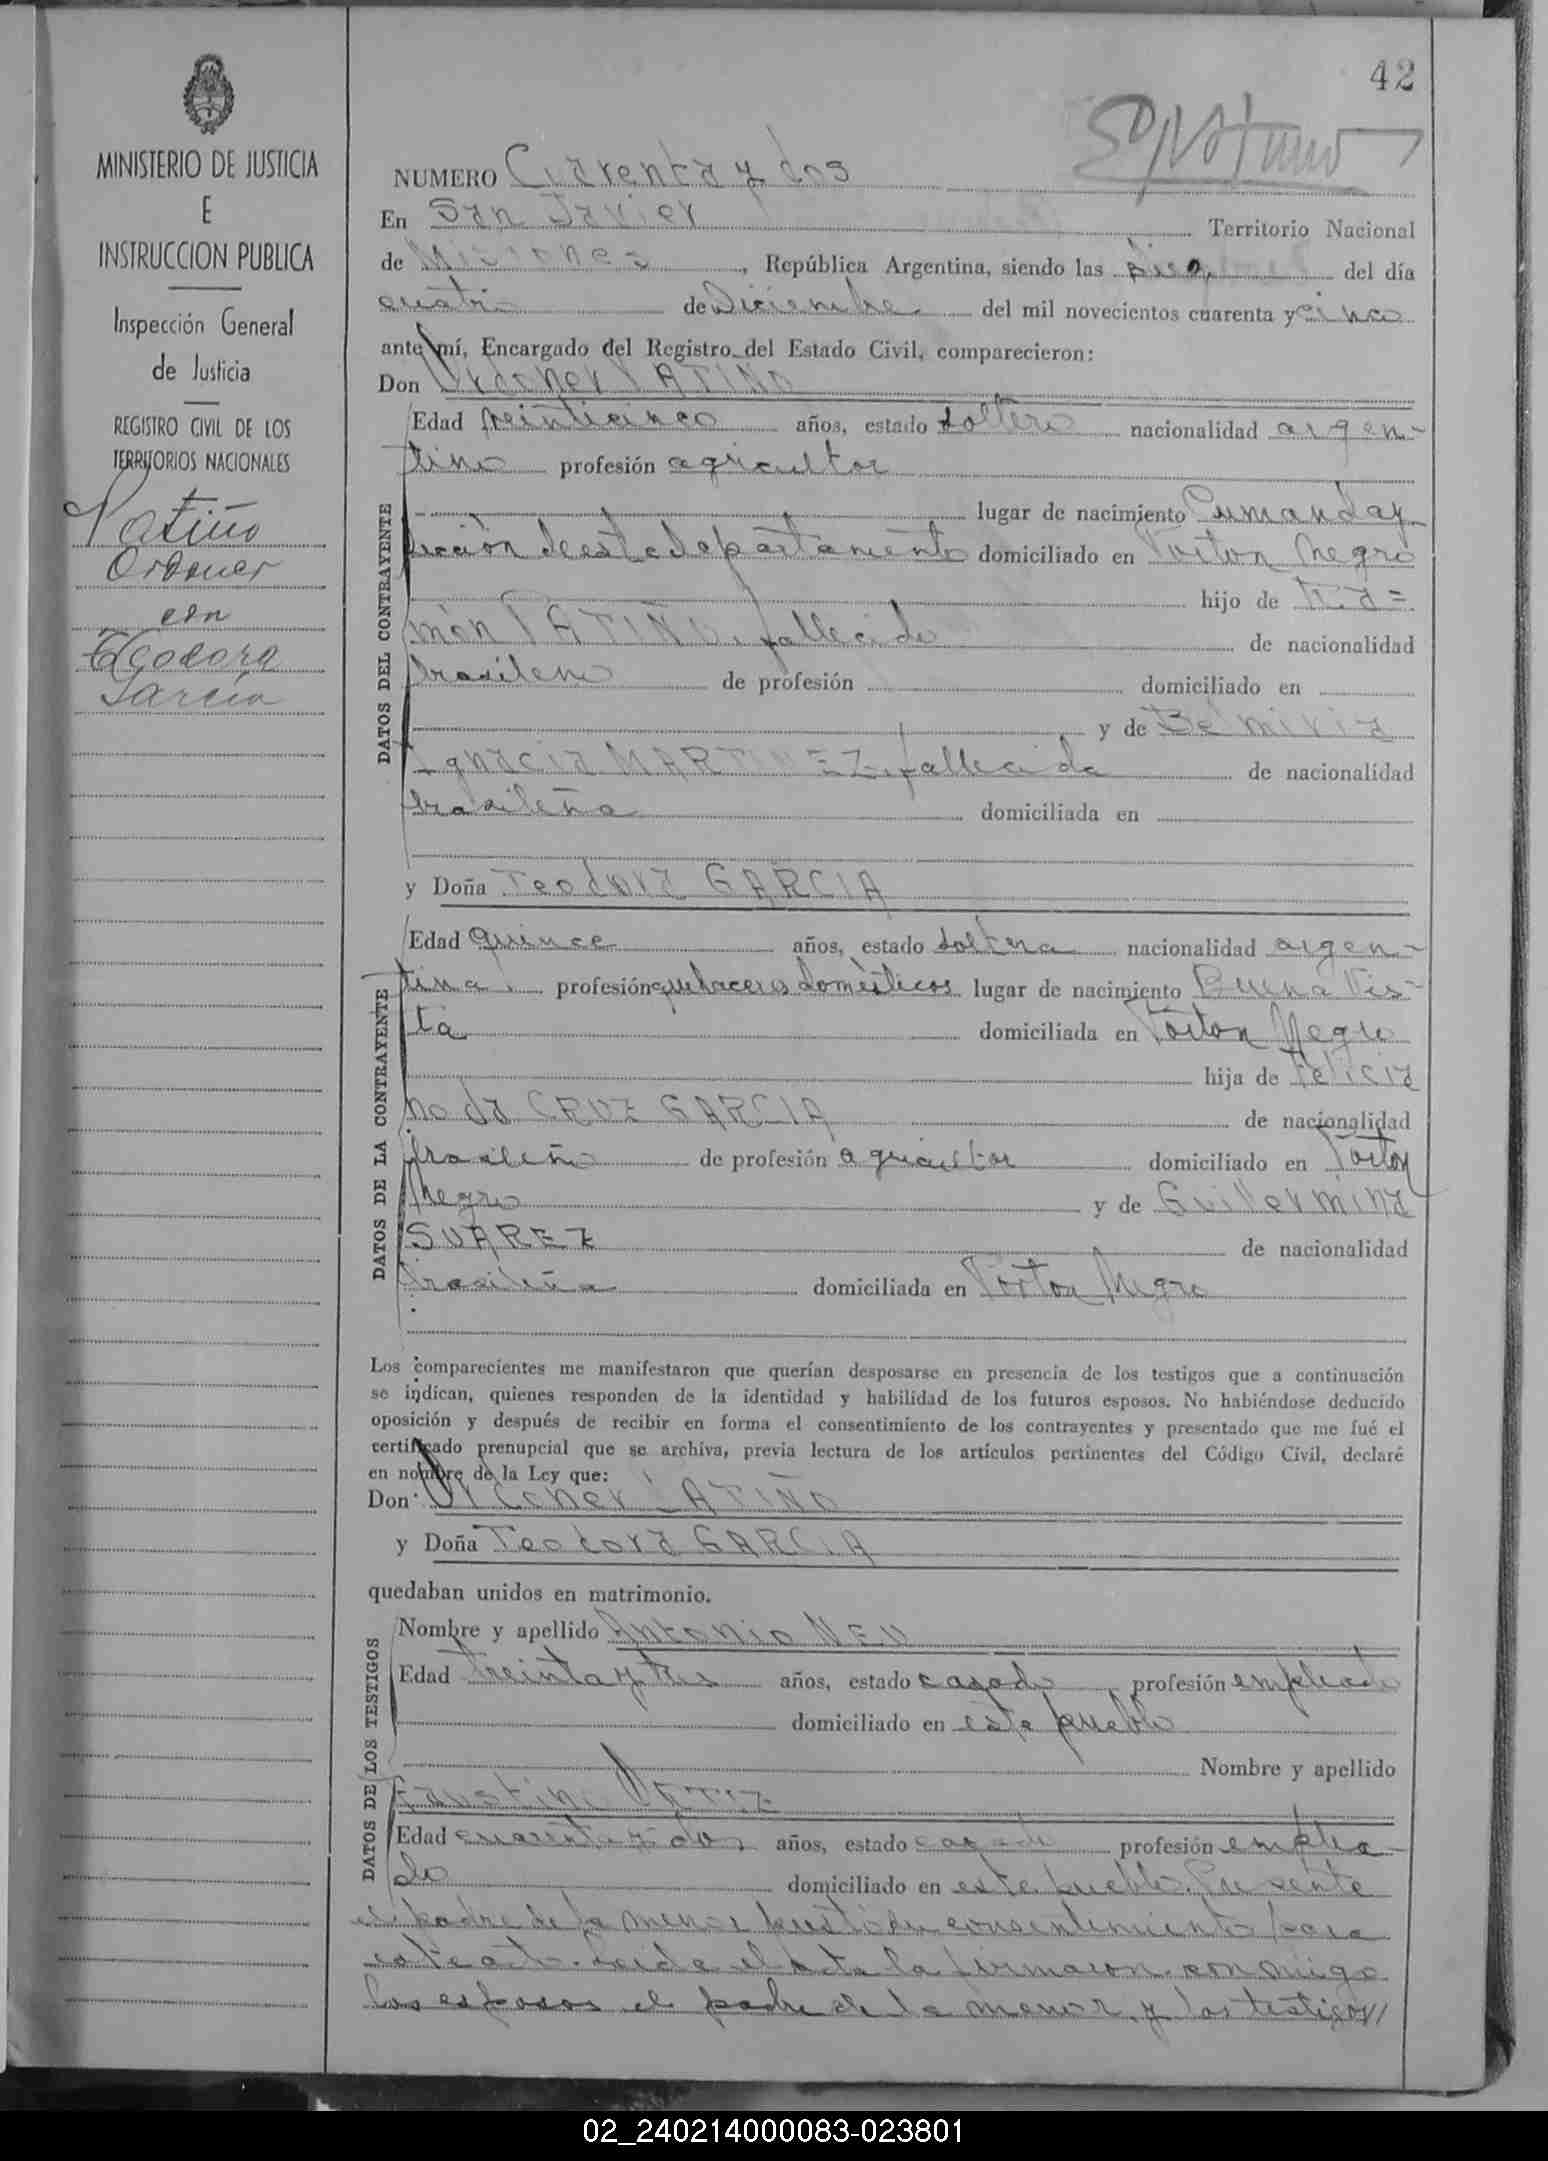 42
MINISTERIO DE JUSTICIA
E
INSTRUCCION PUBLICA
Inspección General
de Justicia
REGISTRO CIVIL DE LOS
TERRITORIOS NACIONALES
Patiño
Ordoner
con
Teodora
García
NUMERO Cuarenta y dos
En San Javier Territorio Nacional
de Misiones, República Argentina, siendo las diez del día
cuatro de Diciembre del mil novecientos cuarenta y cinco
ante mí, Encargado del Registro del Estado Civil, comparecieron:
Don Ordoner PATIÑO
DATOS DEL CONTRAYENTE
Edad veinticinco años, estado soltero nacionalidad argen-
tino profesión agricultor
lugar de nacimiento Cumanday
sección de este departamento domiciliado en Porton Negro
hijo de Ra=
món PATIÑO, fallecido de nacionalidad
brasileno de profesión domiciliado en
y de Belmiria
Ignacia MARTINEZ, fallecida de nacionalidad
brasileña domiciliada en
y Doña Teodora GARCIA
DATOS DE LA CONTRAYENTE
Edad quince años, estado soltera nacionalidad argen-
tina profesión quehaceres domésticos lugar de nacimiento Buena Vis-
ta domiciliada en Porton Negro
hija de Felicia
no da CRUZ GARCIA de nacionalidad
brasileño de profesión agricultor domiciliado en Porton
Negro y de Guillermina
SUAREZ de nacionalidad
brasileña domiciliada en Porton Negro
Los comparecientes me manifestaron que querían desposarse en presencia de los testigos que a continuación
se indican, quienes responden de la identidad y habilidad de los futuros esposos. No habiéndose deducido
oposición y después de recibir en forma el consentimiento de los contrayentes y presentado que me fué el
certificado prenupcial que se archiva, previa lectura de los artículos pertinentes del Código Civil, declaré
en nombre de la Ley que:
Don Ordoner PATIÑO
y Doña Teodora GARCIA
quedaban unidos en matrimonio.
DATOS DE LOS TESTIGOS
Nombre y apellido Antonio NEU
Edad treinta y tres años, estado casado profesión empleado
domiciliado en este pueblo
Nombre y apellido
Faustino ORTIZ
Edad cuarenta y dos años, estado casado profesión emplea-
do domiciliado en este pueblo. Presente
el padre de la menor prestó su consentimiento para
este acto. Leida el acta la firmaron conmigo
los esposos el padre de la menor, y los testigos//
02_240214000083-023801